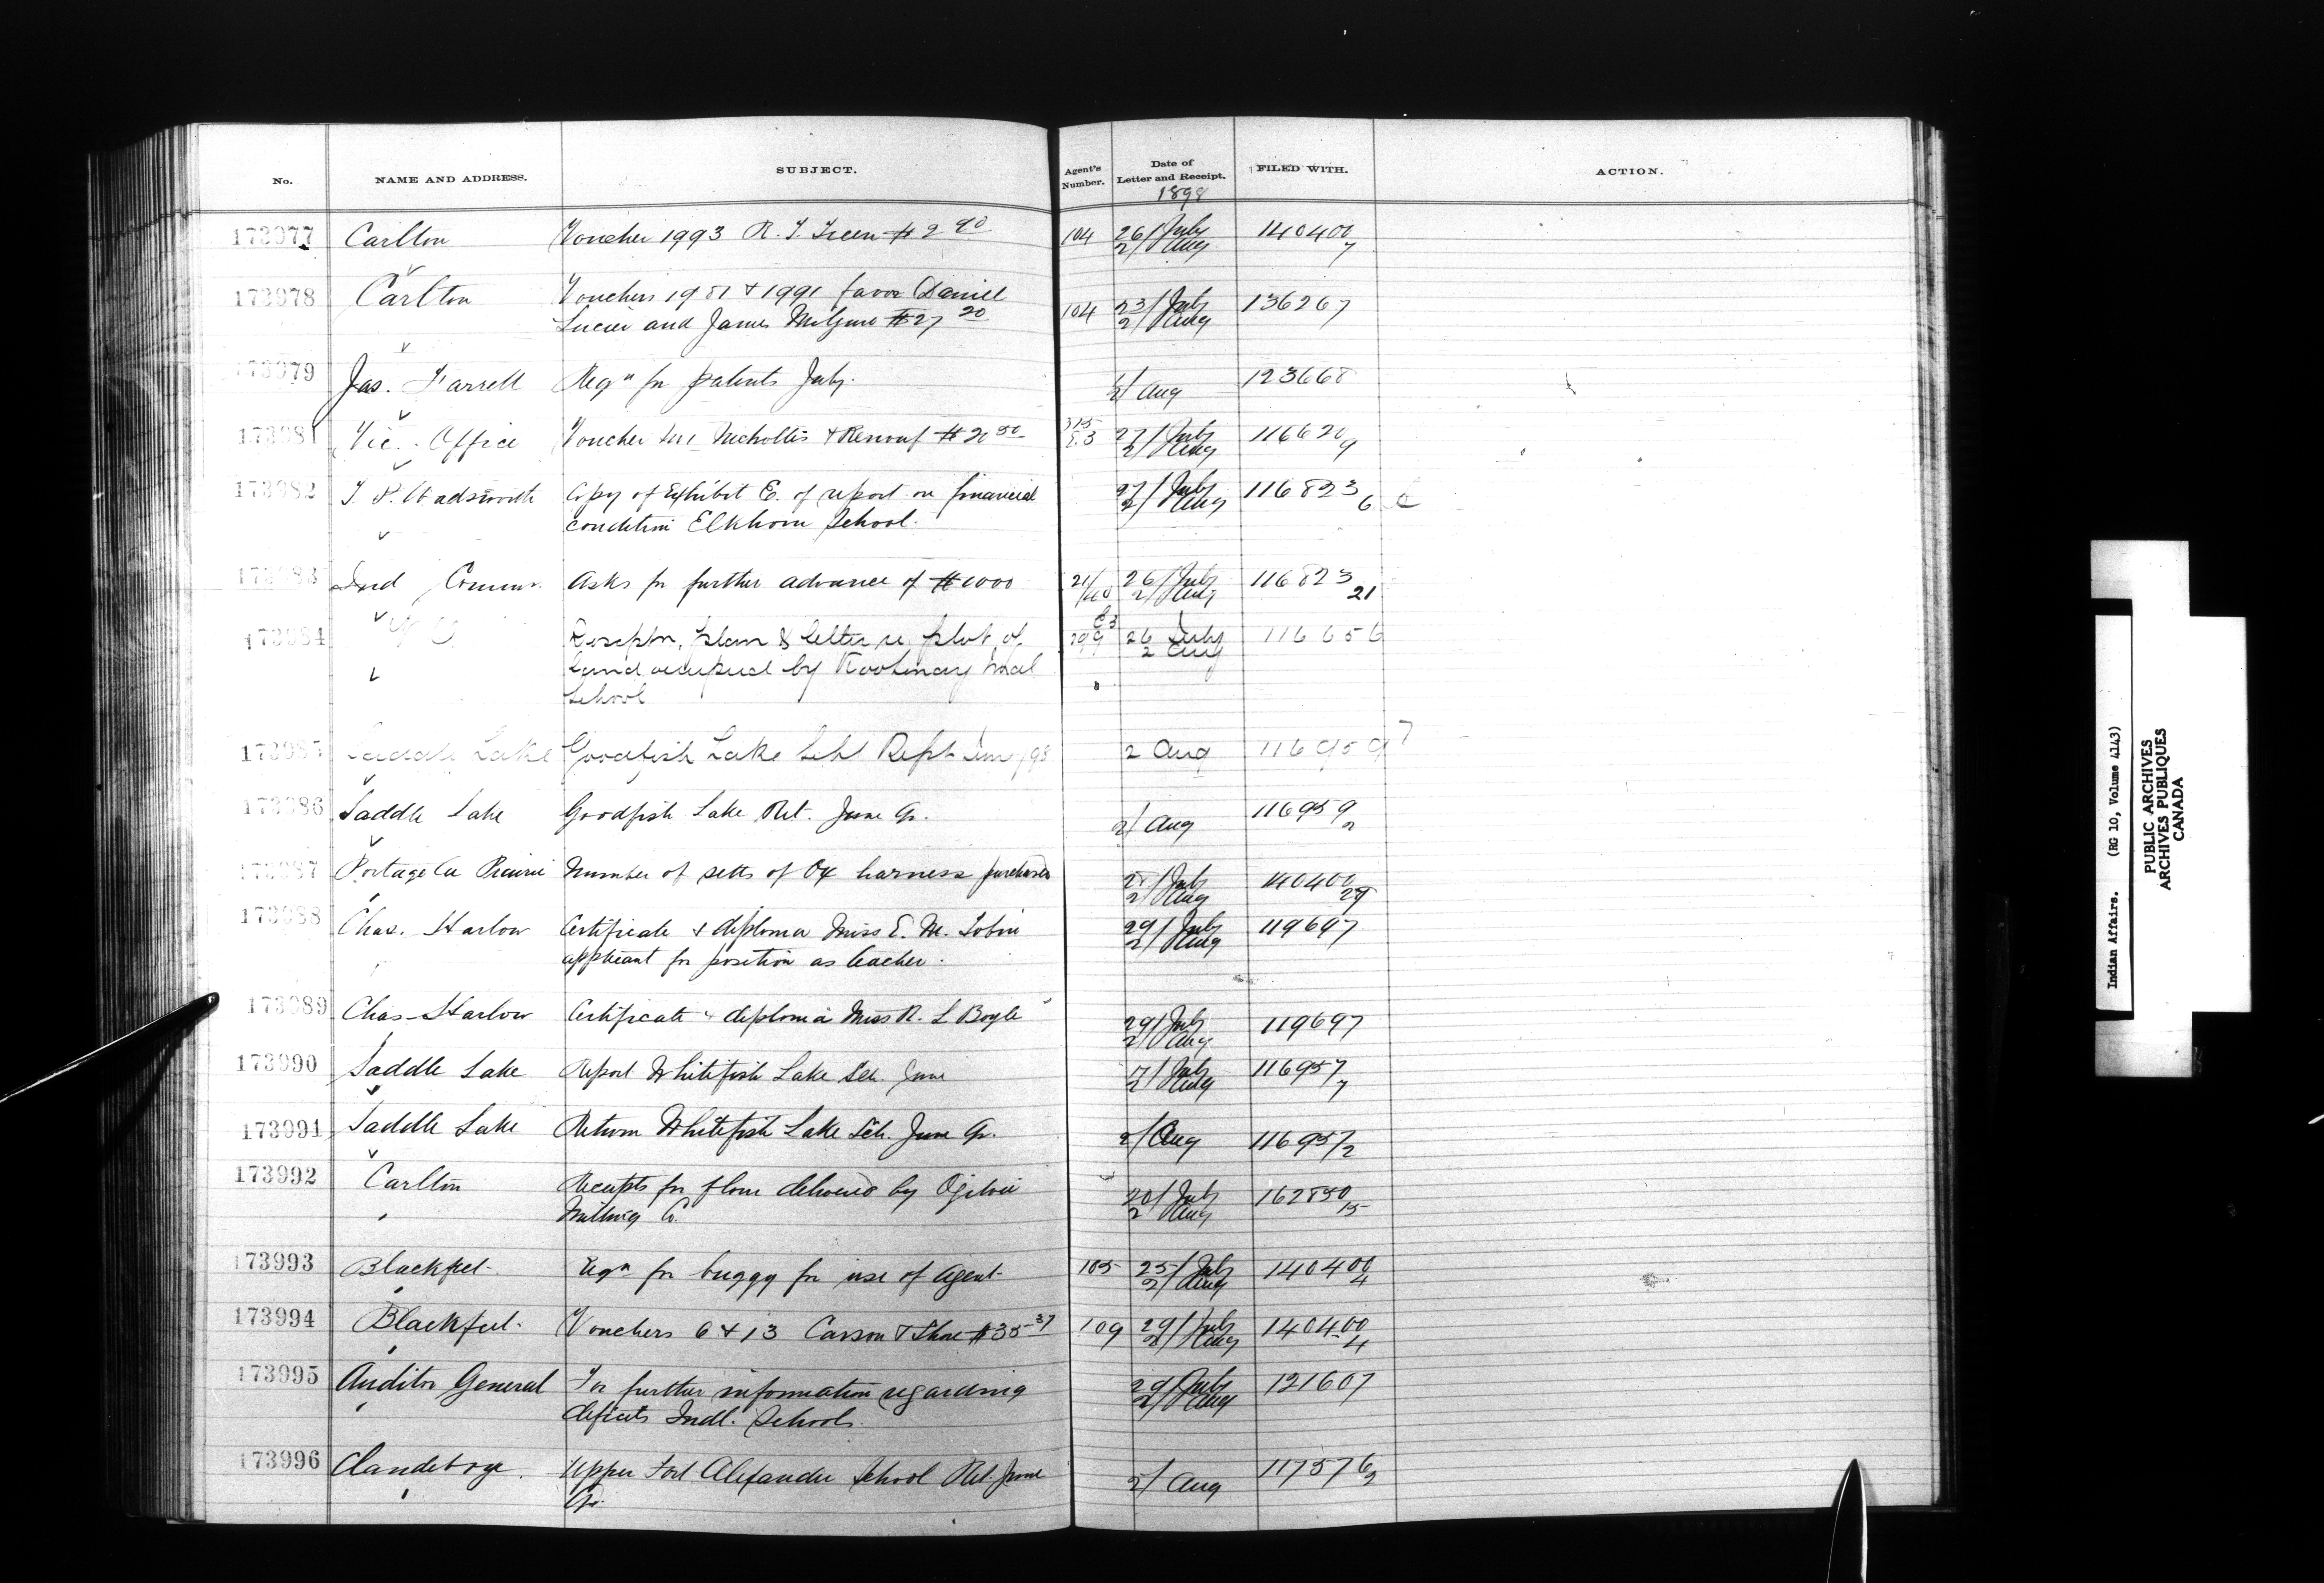 No. NAME AND ADDRESS. SUBJECT. Agent's Number. Date of Letter and Receipt. FILED WITH. ACTION.
1898
173977 Carlton Voucher 1993 R. T. Green $2 90 104 26/July 140400
2/Aug 7
173978 Carlton Vouchers 1981 & 1991 favor Daniel 104 23/July 136267
Lucier and James $27 20 2/Aug
173979 Jas. Farrell Reqn for patents July. 2/Aug 123668
173981 Vic. Office Voucher Nicholles & Renouf $20 50 315 E.3 27/July 116620
2/Aug 9
173982 T. P. Wadsworth Copy of Exhibit E. of report on financial 27/July 116823
condition Elkhorn School. 2/Aug 6
173983 Ind Commr. Asks for further advance of $1000 21/ 26/July 116823
2/Aug 21
173984 Descptn, plan & letter re plot of 299 26 July 116656
land occupied by Kootenay Indl 2 Aug
School
173985 Saddle Lake Goodfish Lake Schl Rept June/98 2 Aug 116959 7
173986 Saddle Lake Goodfish Lake Ret. June Qr. 2/Aug 116959
2
173987 Portage la Prairie Number of setts of Ox harness purchased 28/July 140400
2/Aug 29
173988 Chas. Harlow Certificate & diploma Miss E. M. Tobin 29/July 119697
applicant for position as teacher. 2/Aug
173989 Chas Harlow Certificate & diploma Miss R. L Boyle 29/July 119697
2/Aug
173990 Saddle Lake Report Whitefish Lake Sch. June 17/July 116957
2/Aug 7
173991 Saddle Lake Return Whitefish Lake Sch. June Qr. 2/Aug 116957
2
173992 Carlton Receipts for flour delivered by Ogilvie 20/July 162850
Milling Co. 2 Aug 15
173993 Blackfeet Reqn for buggy for use of Agent 105 25/July 140400
2/Aug 4
173994 Blackfeet. Vouchers 6 & 13 Carson & Shore $35 37 109 29/July 140400
2/Aug 4
173995 Auditor General For further information regarding 29/July 121607
deficits Indl. Schools. 2/Aug
173996 Clandeboye. Upper Fort Alexander School Ret. June 2/Aug 117576
Qr. 2
Indian Affairs. (RG 10, Volume 4143)
PUBLIC ARCHIVES
ARCHIVES PUBLIQUES
CANADA